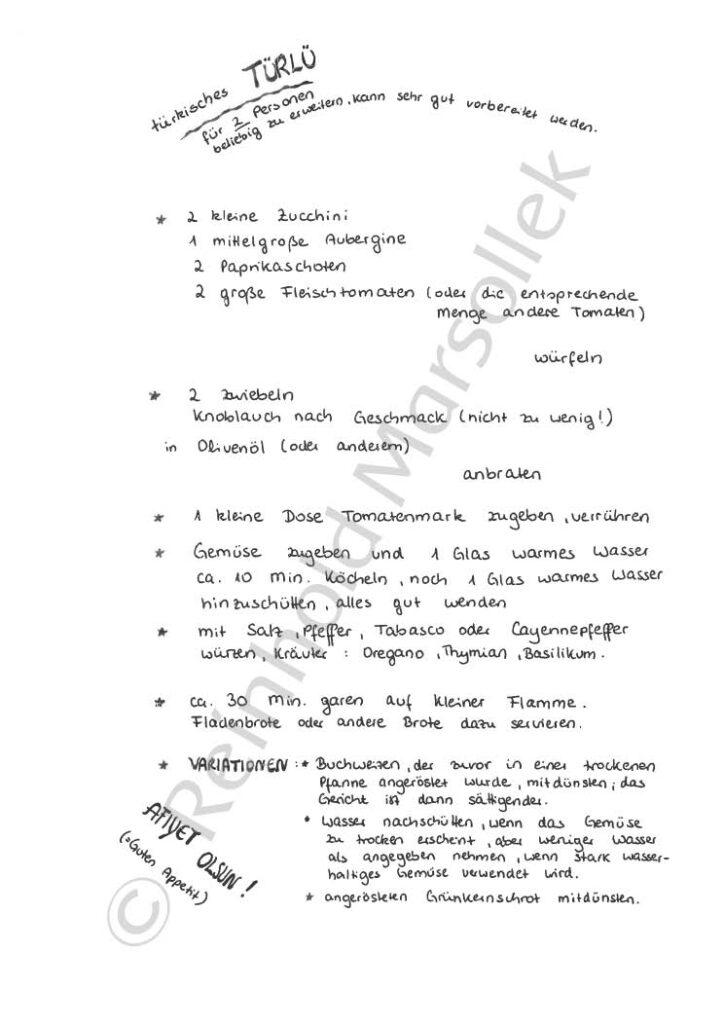 türkisches TÜRLÜ
für 2 Personen
beliebig zu erweitern, kann sehr gut vorbereitet werden.
* 2 kleine Zucchini
1 mittelgroße Aubergine
2 Paprikaschoten
2 große Fleischtomaten (oder die entsprechende
Menge andere Tomaten)
würfeln
* 2 Zwiebeln
Knoblauch nach Geschmack (nicht zu wenig!)
in Olivenöl (oder anderem)
anbraten
* 1 kleine Dose Tomatenmark zugeben, verrühren
* Gemüse zugeben und 1 Glas warmes Wasser
ca. 10 min. Köcheln, noch 1 Glas warmes Wasser
hinzuschütten, alles gut wenden
* mit Salz, Pfeffer, Tabasco oder Cayennepfeffer
würzen, Kräuter: Oregano, Thymian, Basilikum.
* ca. 30 min. garen auf kleiner Flamme.
Fladenbrote oder andere Brote dazu servieren.
* VARIATIONEN: * Buchweizen, der zuvor in einer trockenen
Pfanne angeröstet wurde, mitdünsten; das
Gericht ist dann sättigender.
* Wasser nachschütten, wenn das Gemüse
zu trocken erscheint, aber weniger Wasser
als angegeben nehmen, wenn stark wasser-
haltiges Gemüse verwendet wird.
* angerösteten Grünkernschrot mitdünsten.
AFIYET OLSUN!
(=Guten Appetit)
© Reinhold Marsollek